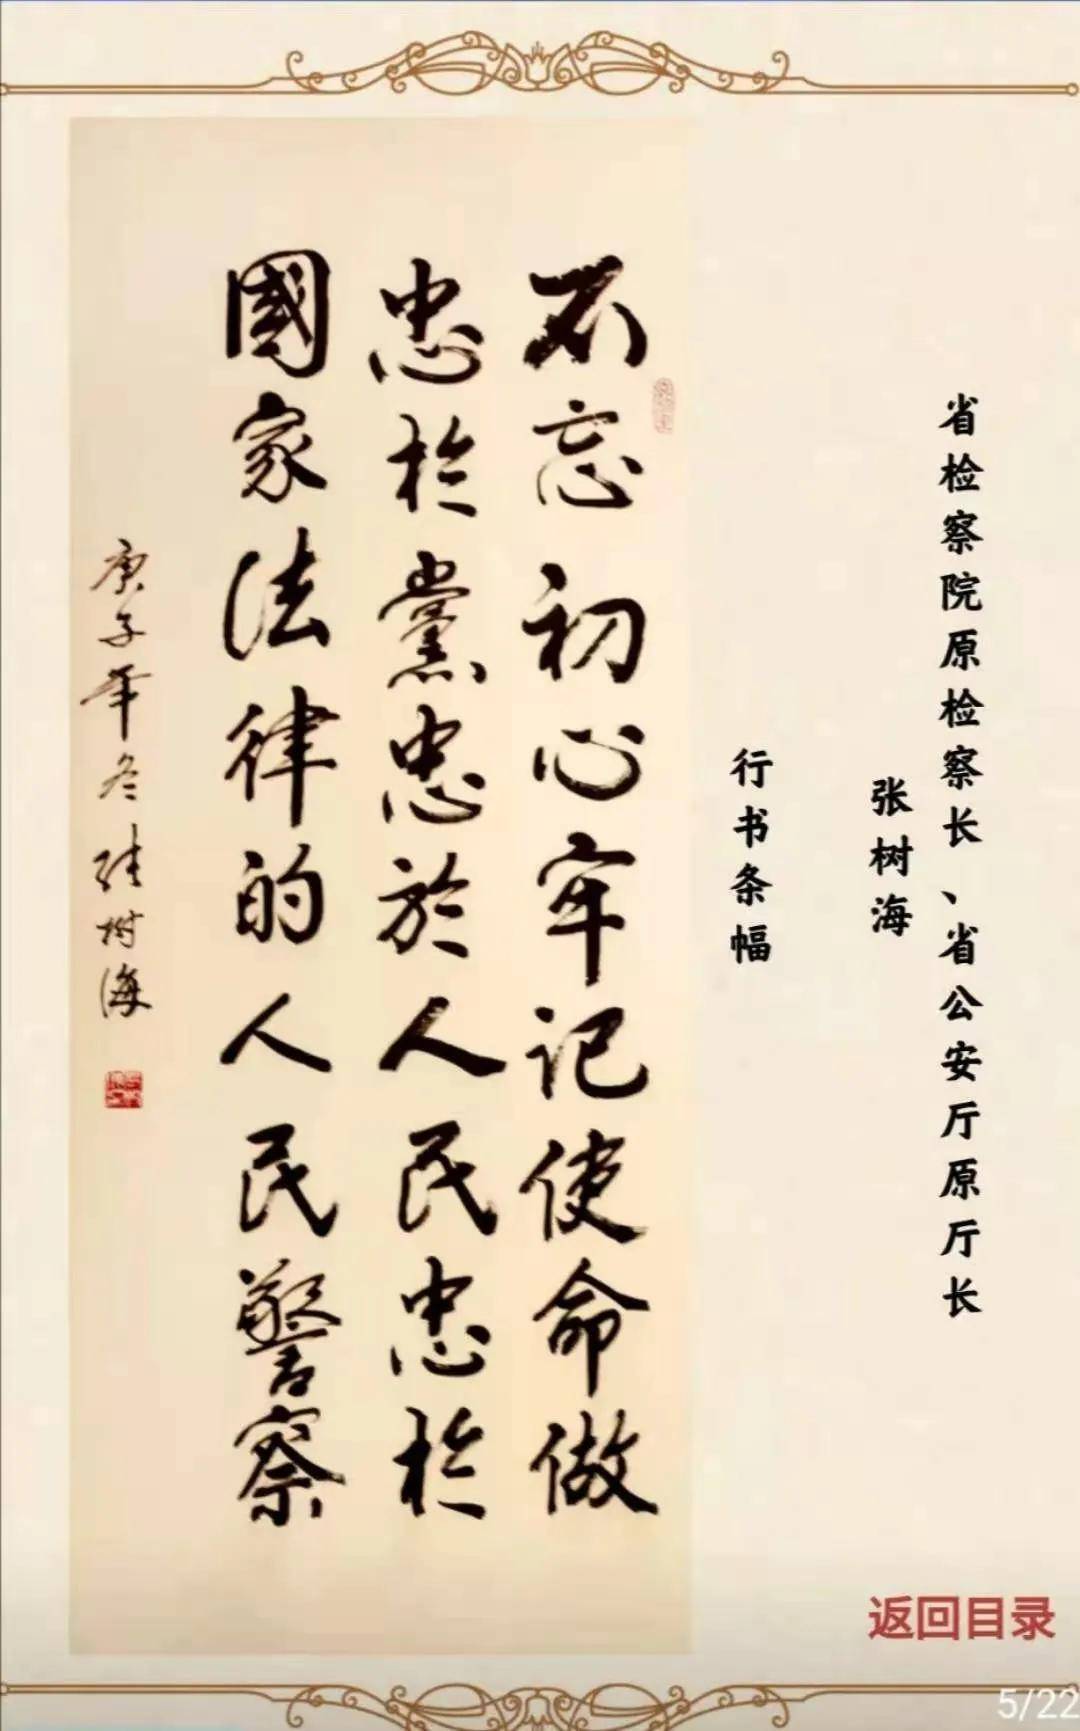 省检察院原检察长、省公安厅原厅长
张树海
行书条幅
不忘初心牢记使命做
忠於黨忠於人民忠於
國家法律的人民警察
庚子年冬張树海
返回目录
5/22